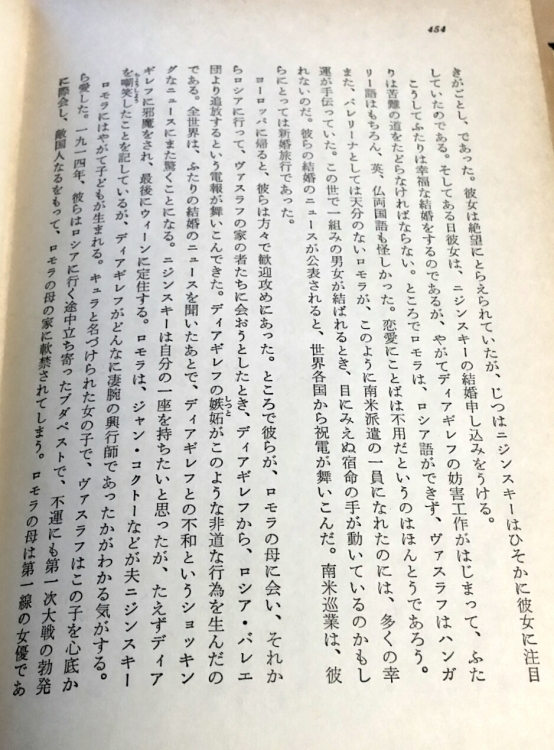 454
きがごとし、であった。彼女は絶望にとらえられていたが、じつはニジンスキーはひそかに彼女に注目
していたのである。そしてある日彼女は、ニジンスキーの結婚申し込みをうける。
こうしてふたりは幸福な結婚をするのであるが、やがてディアギレフの妨害工作がはじまって、ふた
りは苦難の道をたどらなければならない。ところでロモラは、ロシア語ができず、ヴァスラフはハンガ
リー語はもちろん、英、仏両国語も怪しかった。恋愛にことばは不用だというのはほんとうであろう。
また、バレリーナとしては天分のないロモラが、このように南米派遣の一員になれたのには、多くの幸
運が手伝っていた。この世で一組みの男女が結ばれるとき、目にみえぬ宿命の手が動いているのかもし
れないのだ。彼らの結婚のニュースが公表されると、世界各国から祝電が舞いこんだ。南米巡業は、彼
らにとっては新婚旅行であった。
ヨーロッパに帰ると、彼らは方々で歓迎攻めにあった。ところで彼らが、ロモラの母に会い、それか
らロシアに行って、ヴァスラフの家の者たちに会おうとしたとき、ディアギレフから、ロシア・バレエ
団より追放するという電報が舞いこんできた。ディアギレフの嫉妬がこのような非道な行為を生んだの
である。全世界は、ふたりの結婚のニュースを聞いたあとで、ディアギレフとの不和というショッキン
グなニュースにまた驚くことになる。ニジンスキーは自分の一座を持ちたいと思ったが、たえずディア
ギレフに邪魔をされ、最後にウィーンに定住する。ロモラは、ジャン・コクトーなどが夫ニジンスキー
を嘲笑したことを記しているが、ディアギレフがどんなに凄腕の興行師であったかがわかる気がする。
ロモラにはやがて子どもが生まれる。キュラと名づけられた女の子で、ヴァスラフはこの子を心底か
ら愛した。一九一四年、彼らはロシアに行く途中立ち寄ったブダペストで、不運にも第一次大戦の勃発
に際会し、敵国人なるをもって、ロモラの母の家に軟禁されてしまう。ロモラの母は第一線の女優であ